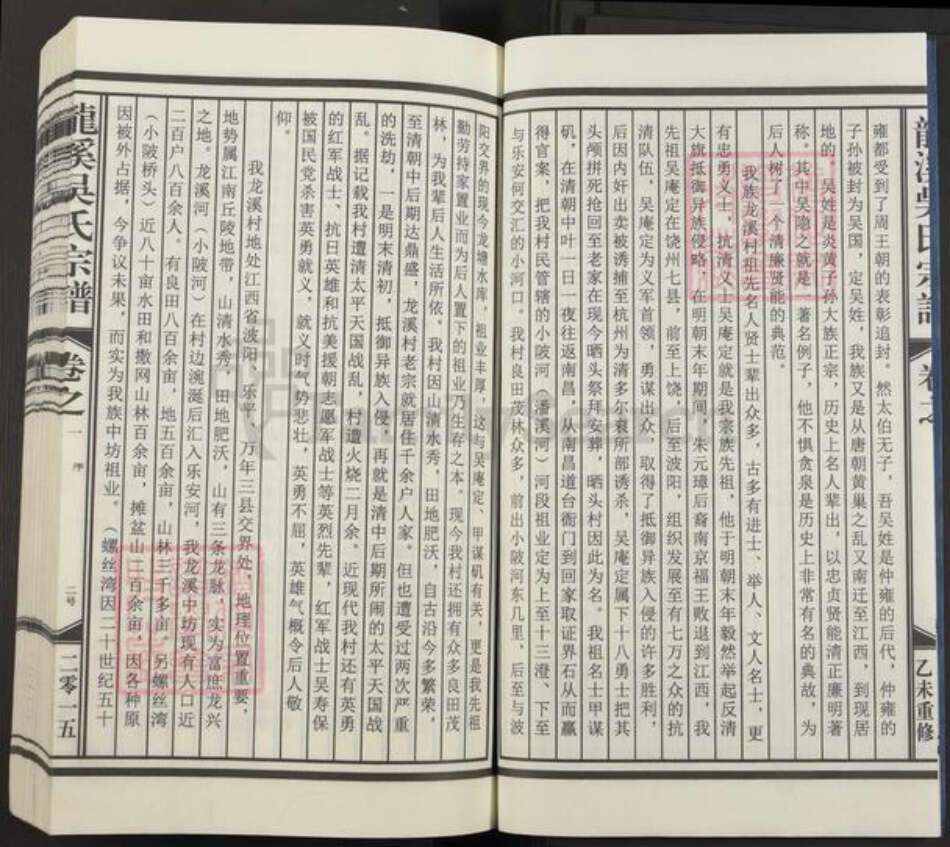 龍溪吴氏宗譜
卷之一
乙未重修
雍都受到了周王朝的表彰追封。然太伯无子，吾吴姓是仲雍的后代，仲雍的
子孙被封为吴国，定吴姓，我族又是从唐朝黄巢之乱又南迁至江西，到现居
地的。吴姓是炎黄子孙大族正宗，历史上名人辈出，以忠贞贤能清正廉明著
称。其中吴隐之就是一著名例子，他不惧贪泉是历史上非常有名的典故，为
后人树了一个清廉贤能的典范。
我族龙溪村祖先名人贤士辈出众多，古多有进士、举人、文人名士，更
有忠勇义士，抗清义士吴庵定就是我宗族先祖，他于明朝末年毅然举起反清
大旗抵御异族侵略，在明朝末年期间，朱元璋后裔南京福王败退到江西，我
先祖吴庵定在饶州七县，前至上饶，后至波阳，组织发展至有七万之众的抗
清队伍，吴庵定为义军首领，勇谋出众，取得了抵御异族入侵的许多胜利，
后因内奸出卖被诱捕至杭州为清多尔衮所部诱杀，吴庵定属下十八勇士把其
头颅拼死抢回至老家在现今晒头祭拜安葬，晒头村因此为名。我祖名士甲谋
矶，在清朝中叶一日一夜往返南昌，从南昌道台衙门到回家取证界石从而赢
得官案，把我村民管辖的小陂河（潘溪河）河段祖业定为上至十三澄、下至
与乐安何交汇的小河口。我村良田茂林众多，前出小陂河东几里，后至与波
阳交界的现今龙塘水库，祖业丰厚，这与吴庵定、甲谋矶有关，更是我先祖
勤劳持家置业而为后人置下的祖业乃生存之本。现今我村还拥有众多良田茂
林，为我辈后人生活所依。我村因山清水秀，田地肥沃，自古沿今多繁荣，
至清朝中后期达鼎盛，龙溪村老宗就居住千余户人家。但也遭受过两次严重
的洗劫，一是明末清初，抵御异族入侵，再就是清中后期所闹的太平天国战
乱。据记载我村遭清太平天国战乱，村遭火烧二月余。近现代我村还有英勇
的红军战士、抗日英雄和抗美援朝志愿军战士等英烈先辈，红军战士吴寿保
被国民党杀害英勇就义，就义时气势悲壮，英勇不屈，英雄气概令后人敬
仰。
我龙溪村地处江西省波阳、乐平、万年三县交界处，地理位置重要，
地势属江南丘陵地带，山清水秀，田地肥沃，山有三条龙脉，实为富庶龙兴
之地。龙溪河（小陂河）在村边涴涎后汇入乐安河，我龙溪中坊现有人口近
二百户八百余人。有良田八百余亩，地五百余亩，山林三千多亩。另螺丝湾
（小陂桥头）近八十亩水田和撒网山林百余亩，摊盆山二百余亩，因各种原
因被外占据，今争议未果，而实为我族中坊祖业。（螺丝湾因二十世纪五十
龍溪吴氏宗譜
卷之一
序
二号
二零一五